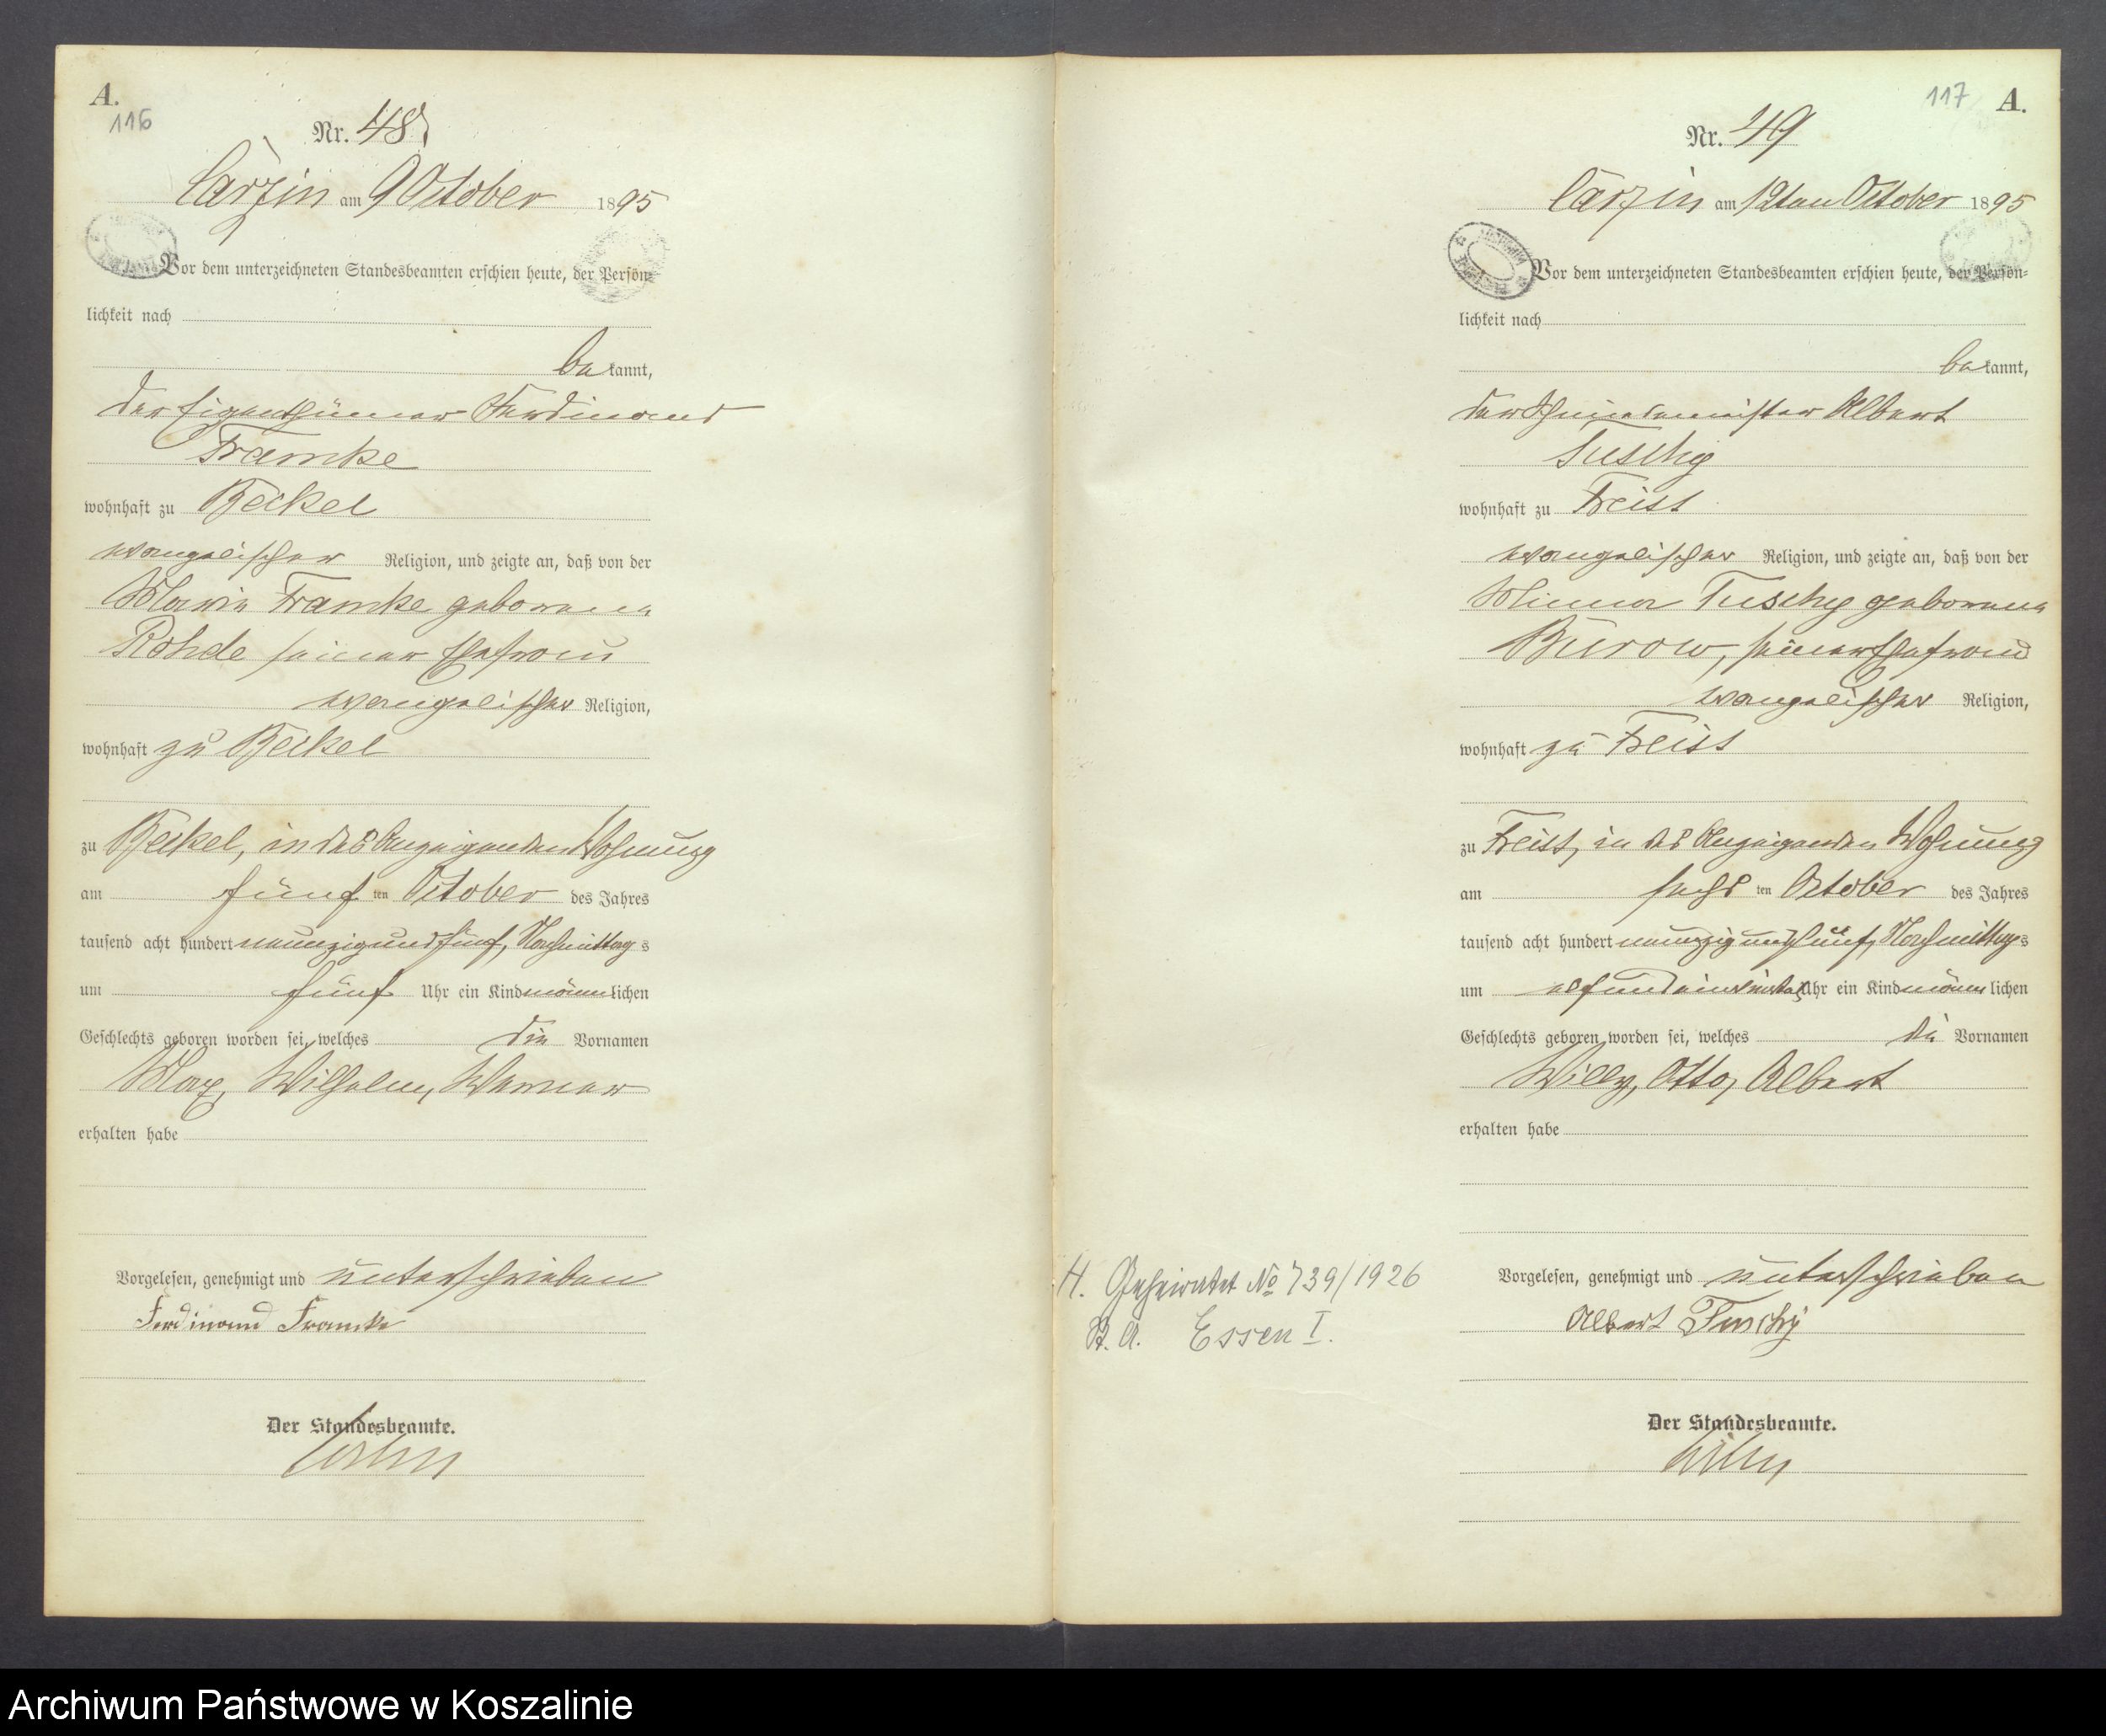 A.
116
Nr. 48
Carzin am 9 October 1895
Vor dem unterzeichneten Standesbeamten erschien heute, der Persön=
lichkeit nach
be kannt,
der Eigenthümer Ferdinand
Framke
wohnhaft zu Beckel
evangelischer Religion, und zeigte an, daß von der
Marie Framke geborene
Rohde seiner Ehefrau
evangelischer Religion,
wohnhaft zu Beckel
zu Beckel, in des Anzeigenden Wohnung
am fünf ten October des Jahres
tausend acht hundert neunzig und fünf, Nachmittag s
um fünf Uhr ein Kind männ lichen
Geschlechts geboren worden sei, welches die Vornamen
Max, Wilhelm, Werner
erhalten habe
Vorgelesen, genehmigt und unterschrieben
Ferdinand Framke
Der Standesbeamte.
117 A.
Nr. 49
Carzin am 12ten October 1895
Vor dem unterzeichneten Standesbeamten erschien heute, der Persön=
lichkeit nach
be kannt,
der Schmiedemeister Albert
Tuschy
wohnhaft zu Freist
evangelischer Religion, und zeigte an, daß von der
Minna Tuschy geborene
Burow, seiner Ehefrau
evangelischer Religion,
wohnhaft zu Freist
zu Freist, in des Anzeigenden Wohnung
am sechs ten October des Jahres
tausend acht hundert neunzig und fünf, Nachmittags
um elf und ein viertel Uhr ein Kind männ lichen
Geschlechts geboren worden sei, welches die Vornamen
Willy, Otto, Albert
erhalten habe
Vorgelesen, genehmigt und unterschrieben
Albert Tuschy
Der Standesbeamte.
H. Geheiratet No 739/1926
St. A. Essen I.
Archiwum Państwowe w Koszalinie